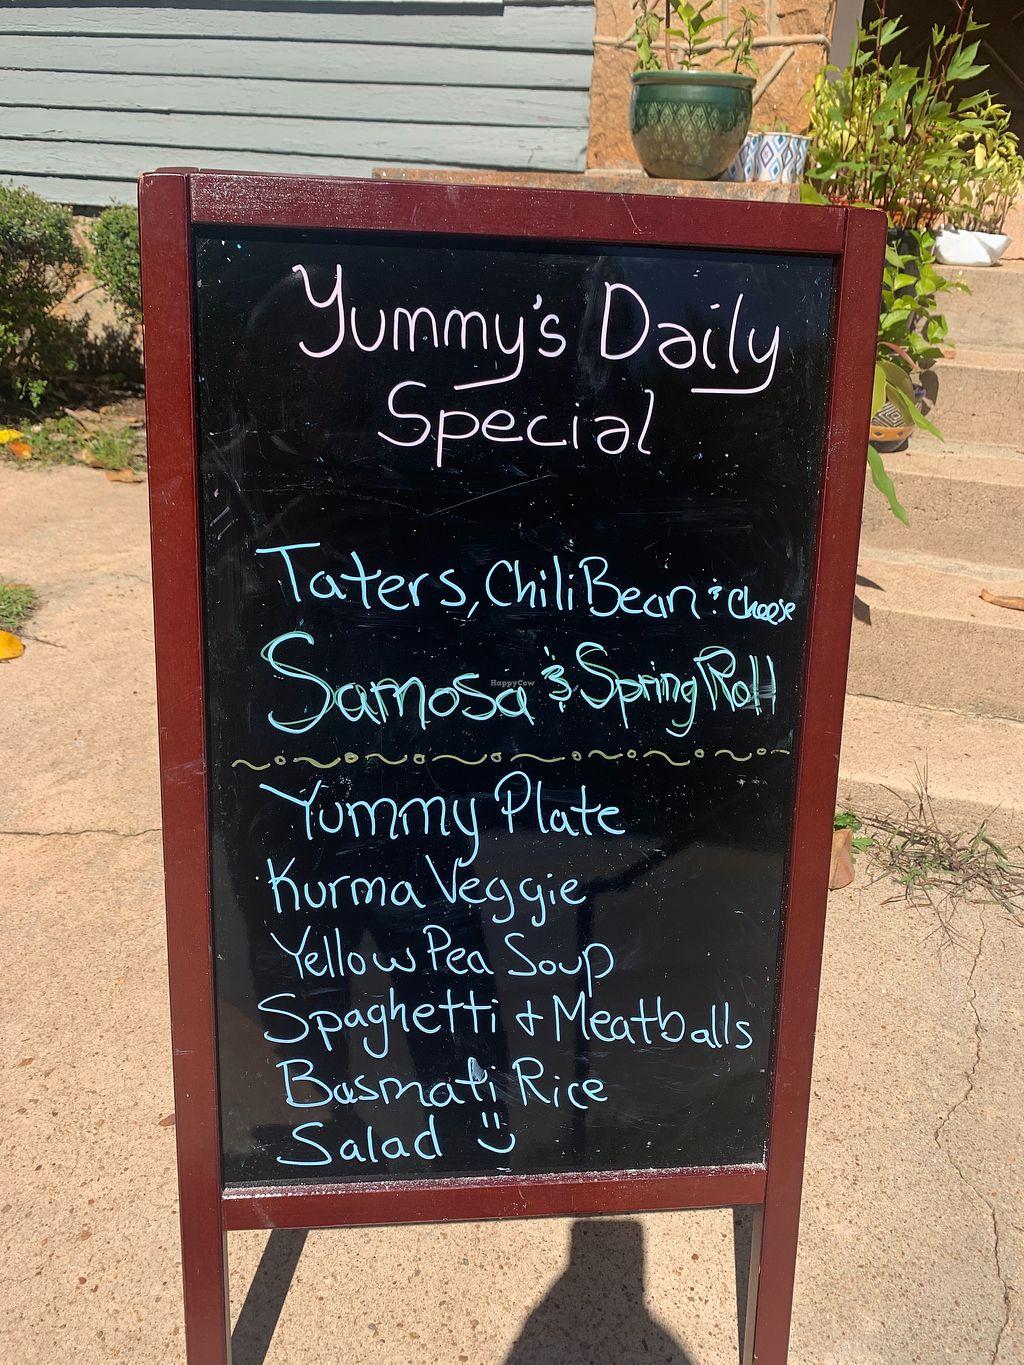 Yummy's Daily
Special
Taters, Chili Bean & Cheese
Samosa & Spring Roll
HappyCow
Yummy Plate
Kurma Veggie
Yellow Pea Soup
Spaghetti & Meatballs
Basmati Rice
Salad